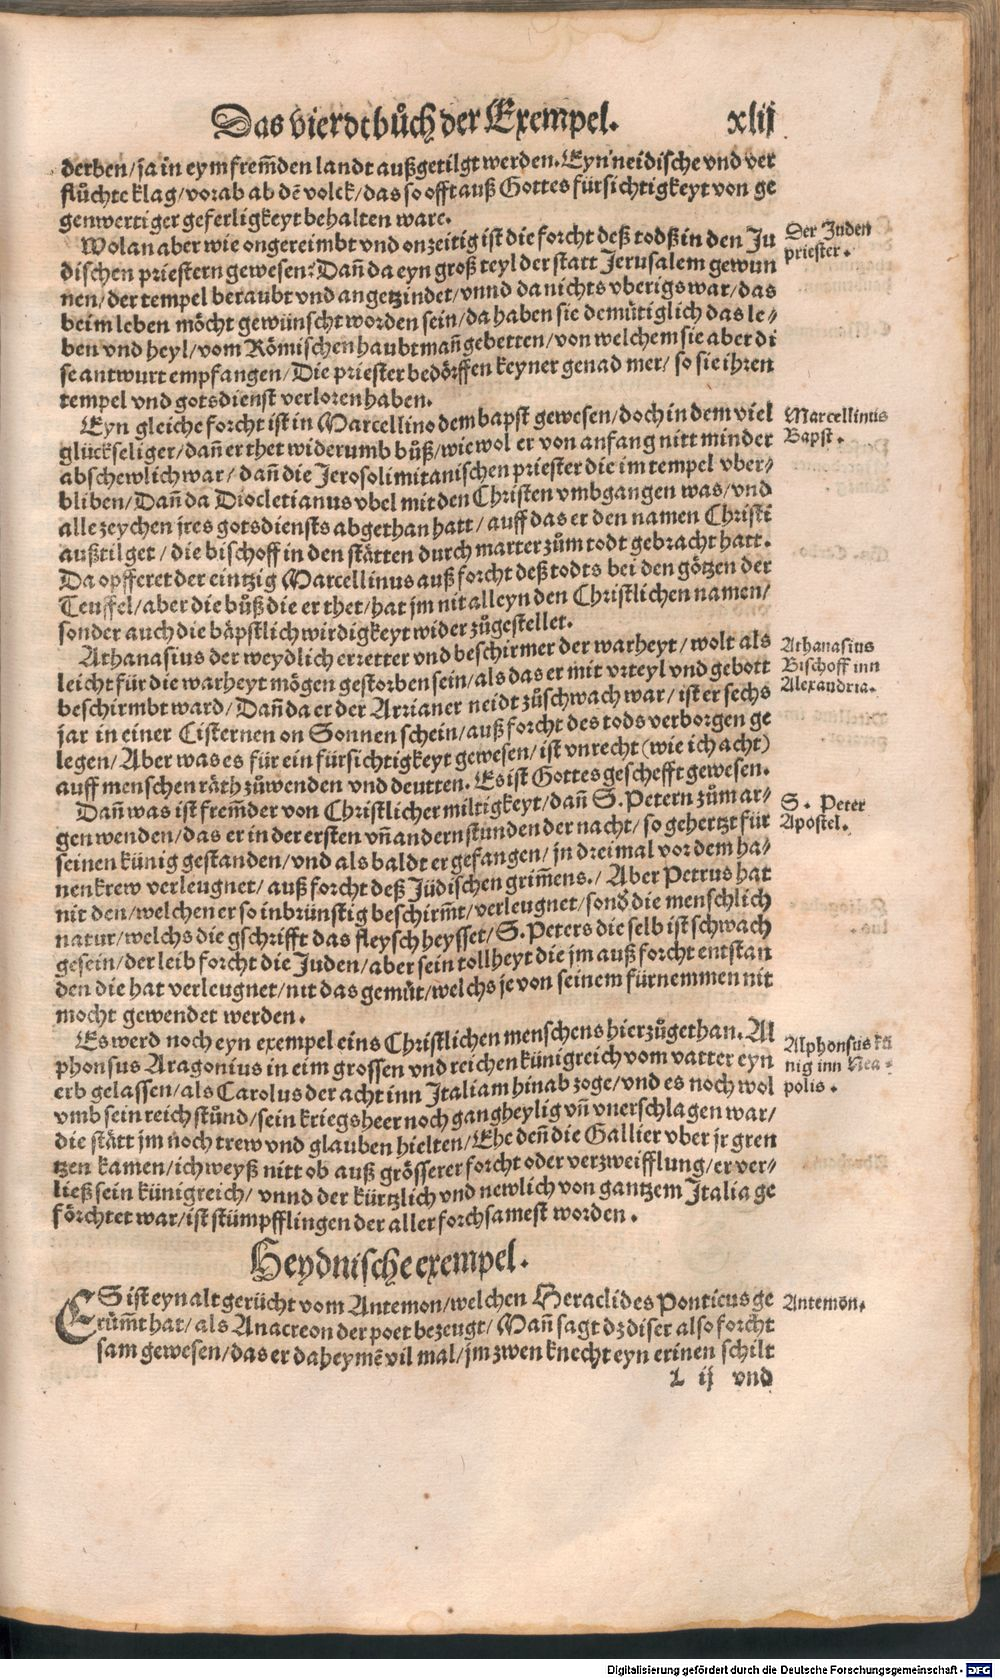 Das vierdt bůch der Exempel. xlij
derben/ ja in eym frem̃den landt außgetilgt werden. Eyn neidische vnd ver
flůchte klag/ vorab ab dẽ volck/ das so offt auß Gottes fürsichtigkeyt von ge
genwertiger geferligkeyt behalten ware.
Wolan aber wie ongereimbt vnd onzeitig ist die forcht deß todß in den Ju
dischen priestern gewesen: Dañ da eyn groß teyl der statt Jerusalem gewun
nen/ der tempel beraubt vnd angetzindet/ vnnd da nichts vberigs war/ das
beim leben möcht gewünscht worden sein/ da haben sie demütiglich das le-
ben vnd heyl/ vom Römischen haubtmañ gebetten/ von welchem sie aber di
se antwurt empfangen/ Die priester bedörffen keyner genad mer/ so sie ihren
tempel vnd gotsdienst verloren haben.
Der Juden
priester.
Eyn gleiche forcht ist in Marcellino dem bapst gewesen/ doch in dem viel
glückseliger/ dañ er thet widerumb bůß/ wiewol er von anfang nitt minder
abschewlich war/ dañ die Jerosolimitanischen priester die im tempel vber-
bliben/ Dañ da Diocletianus vbel mit den Christen vmbgangen was/ vnd
alle zeychen jres gotsdiensts abgethan hatt/ auff das er den namen Christi
außtilget/ die bischoff in den stätten durch marter zům todt gebracht hatt.
Da opfferet der eintzig Marcellinus auß forcht deß todts bei den götzen der
Teuffel/ aber die bůß die er thet/ hat jm nit alleyn den Christlichen namen/
sonder auch die bäpstlich wirdigkeyt wider zůgestellet.
Marcellinus
Bapst.
Athanasius der weydlich erretter vnd beschirmer der warheyt/ wolt als
leicht für die warheyt mögen gestorben sein/ als das er mit vrteyl vnd gebott
beschirmbt ward/ Dañ da er der Arrianer neidt zůschwach war/ ist er sechs
jar in einer Cisternen on Sonnen schein/ auß forcht des tods verborgen ge
legen/ Aber was es für ein fürsichtigkeyt gewesen/ ist vnrecht (wie ich acht)
auff menschen räth zůwenden vnd deutten. Es ist Gottes geschefft gewesen.
Athanasius
Bischoff inn
Alexandria.
Dañ was ist frem̃der von Christlicher miltigkeyt/ dañ S. Petern zům ar-
gen wenden/ das er in der ersten vñ andern stunden der nacht/ so gehertzt für
seinen künig gestanden/ vnd als baldt er gefangen/ jn dreimal vor dem ha-
nenkrew verleugnet/ auß forcht deß Jüdischen grim̃ens./ Aber Petrus hat
nit den/ welchen er so inbrünstig beschirm̃t/ verleugnet/ sonđ die menschlich
natur/ welchs die gschrifft das fleysch heysset/ S. Peters die selb ist schwach
gesein/ der leib forcht die Juden/ aber sein tollheyt die jm auß forcht entstan
den die hat verleugnet/ nit das gemüt/ welchs je von seinem fürnemmen nit
mocht gewendet werden.
S. Peter
Apostel.
Es werd noch eyn exempel eins Christlichen menschens hierzůgethan. Al
phonsus Aragonius in eim grossen vnd reichen künigreich vom vatter eyn
erb gelassen/ als Carolus der acht inn Italiam hinab zoge/ vnd es noch wol
vmb sein reich stůnd/ sein kriegsheer noch gangheylig vñ vnerschlagen war/
die stätt jm noch trew vnd glauben hielten/ Ehe deñ die Gallier vber jr gren
tzen kamen/ ich weyß nitt ob auß grösserer forcht oder verzweifflung/ er ver-
ließ sein künigreich/ vnnd der kürtzlich vnd newlich von gantzem Italia ge
förchtet war/ ist stümpfflingen der aller forchsamest worden.
Alphonsus kü
nig inn Nea-
polis.
Heydnische exempel.
ES ist eyn alt gerücht vom Antemon/ welchen Heraclides Ponticus ge
rüm̃t hat/ als Anacreon der poet bezeugt/ Mañ sagt dz diser also forcht
sam gewesen/ das er daheymẽ vil mal/ jm zwen knecht eyn erinen schilt
Antemon.
L ij vnd
Digitalisierung gefördert durch die Deutsche Forschungsgemeinschaft - DFG